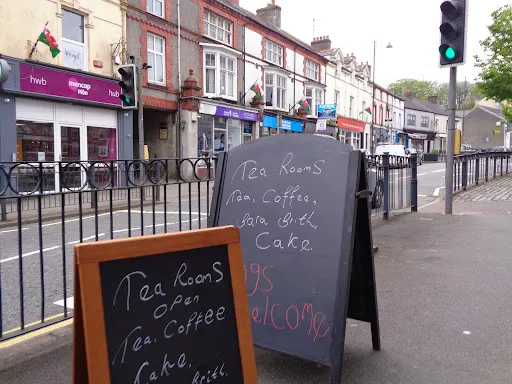 hwb
hub
mencap
Môn
Tea Rooms
Tea, Coffee,
Bara Brith,
Cake
ogs
elcome
Tea Rooms
Open
Tea, Coffee
Cake,
Brith.